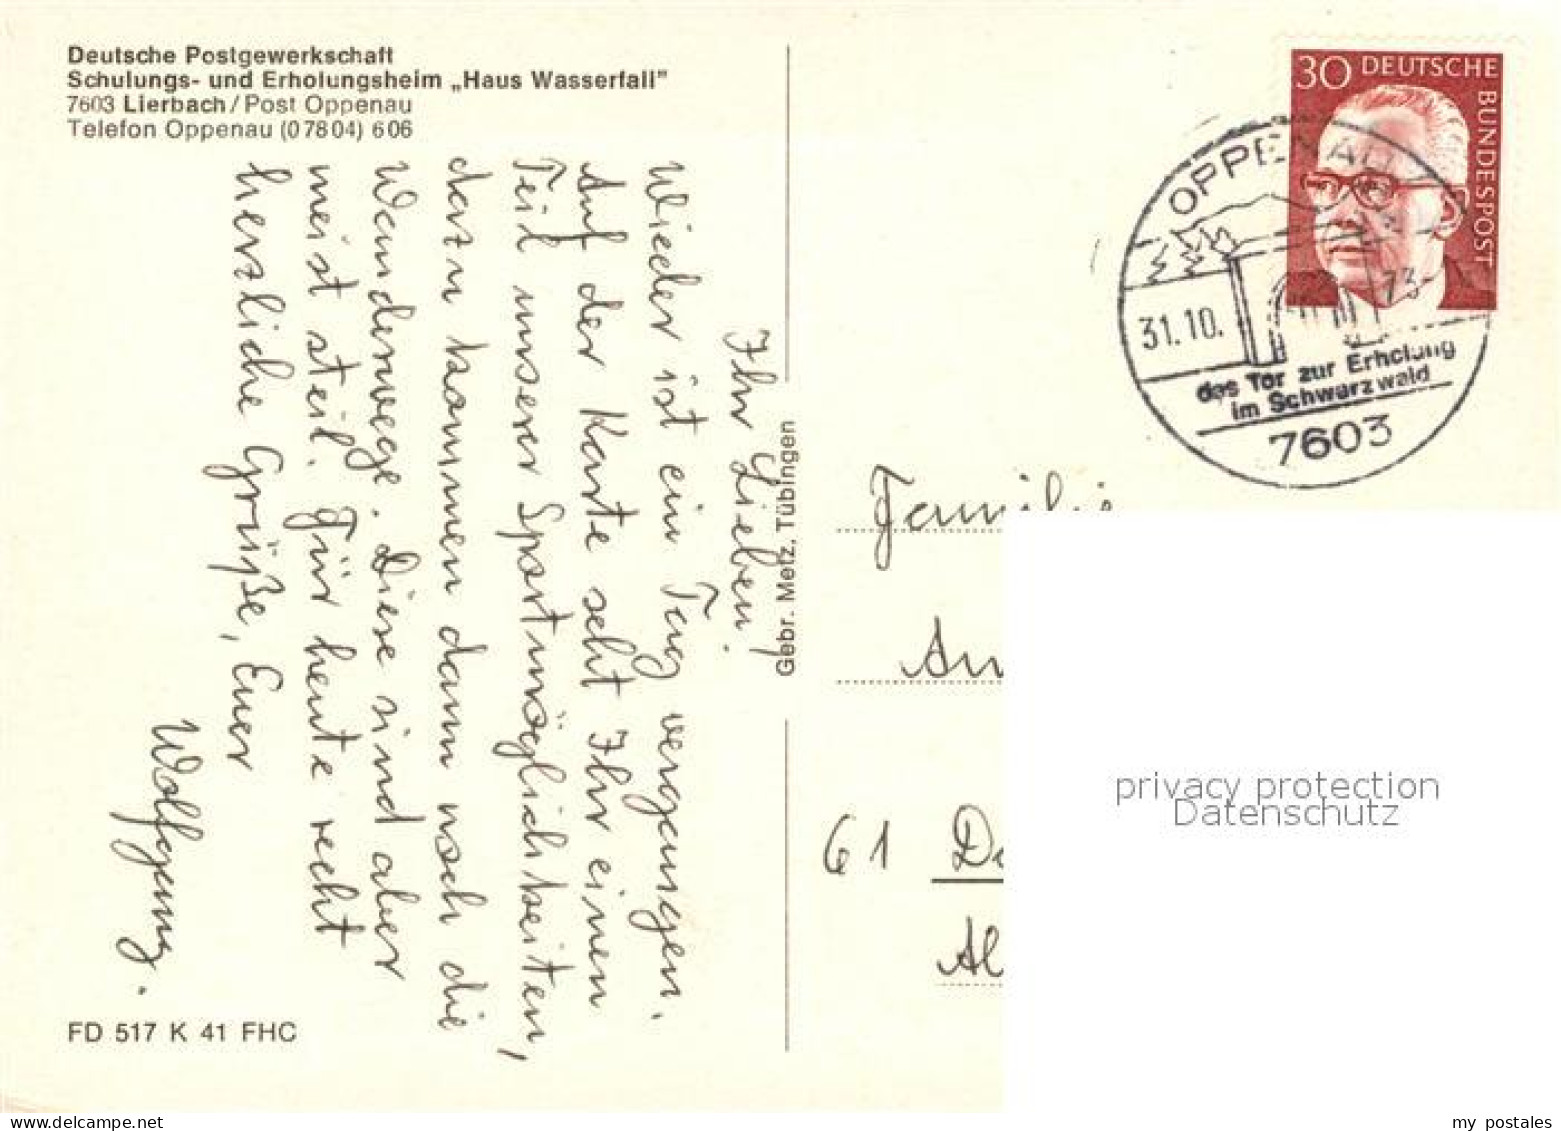 Deutsche Postgewerkschaft
Schulungs- und Erholungsheim „Haus Wasserfall”
7603 Lierbach / Post Oppenau
Telefon Oppenau (07804) 606
Ihr Lieben!
Wieder ist ein Tag vergangen.
Auf der Karte seht Ihr einen
Teil unserer Sportmöglichkeiten,
dazu kommen dann noch die
Wanderwege. Diese sind aber
meist steil. Für heute recht
herzliche Grüße, Euer
Wolfgang.
FD 517 K 41 FHC
Gebr. Metz, Tübingen
30 DEUTSCHE
BUNDESPOST
OPPENAU
31.10. 73
das Tor zur Erholung
im Schwarzwald
7603
Familie
61
privacy protection
Datenschutz
my postales